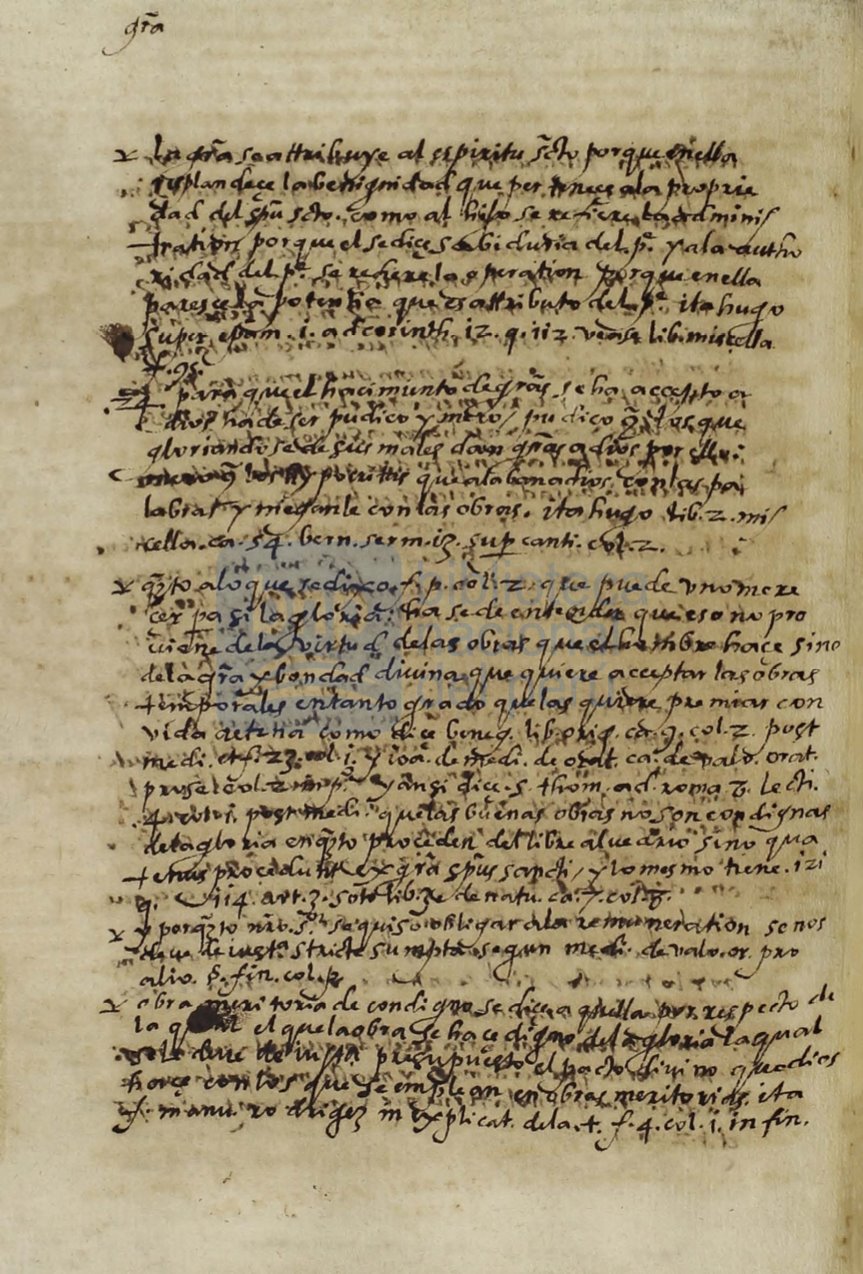 grã
la grã se attribuye al espiritu scto porque enella
resplandeçe la benignidad que perteneçe ala proprie
dad del spũ scto. como al hijo se refiere la adminis
tration porque el se diçe sabiduria del p.e y ala autho
ridad del p.e se refiere la operation porque enella
paresçe la potentia que es attributo del p.e ita hugo
super epam. i. ad corinth. 12. q. 112. vease lib. miscella
f. 95.
para que el hacimiento de grãs se ha accepto a
dios ha de ser pudico y mero / pudico q̃ los que
gloriandose de sus males dan grãs a dios por ello.
mero q̃ los hypocritas que alaban a dios con las pa
labras y nieganle con las obras. ita hugo lib. 2. mis
cella. ca. 54. bern. serm. 13. sup canti. col. 2.
q̃to alo que se dixo. f. p. col. 2. que puede uno mere
cer pa si la gloria: ha se de entender que eso no pro
viene dela virtud delas obras que el hombre hace sino
dela grã y bondad divina que quiere acceptar las obras
temporales en tanto grado que las quiere premiar con
vida aeterna como diçe beneg. lib. orig. ca. 9. col. 2. post
medi. et f. 23. col. i. y ioã. de medi. de orat. ca. de valo. orat.
pro se col. 2. in p.o y ansi diçe. s. thom. ad roma 8. lecti.
4. col. i. post medi. que las buenas obras no son condignas
dela gloria en q̃to proceden del libre alvedrio sino qua
tenus procedunt ex grã spũs sancti / y lo mesmo tiene. 1a 2ae
q. 114. art. 3. soto lib. 3 de natu. ca. 7. col. 8.
y porq̃to nro. s.r se quiso obligar ala remuneration se nos
deve de iust.a stricte sumpta segun medi. de valo. or. pro
alio. §. fin. col. p.
obra meritoria de condigno se diçe aquella por respecto de
la qual el que la obra se hace digno dela gloria la qual
se le deve de iust.a presupuesto el pacto divino que dios
haçe con los que se emplean en obras meritorias. ita
f. manu. rodrigez in explicat. dela. +. f. 4. col. i. in fin.